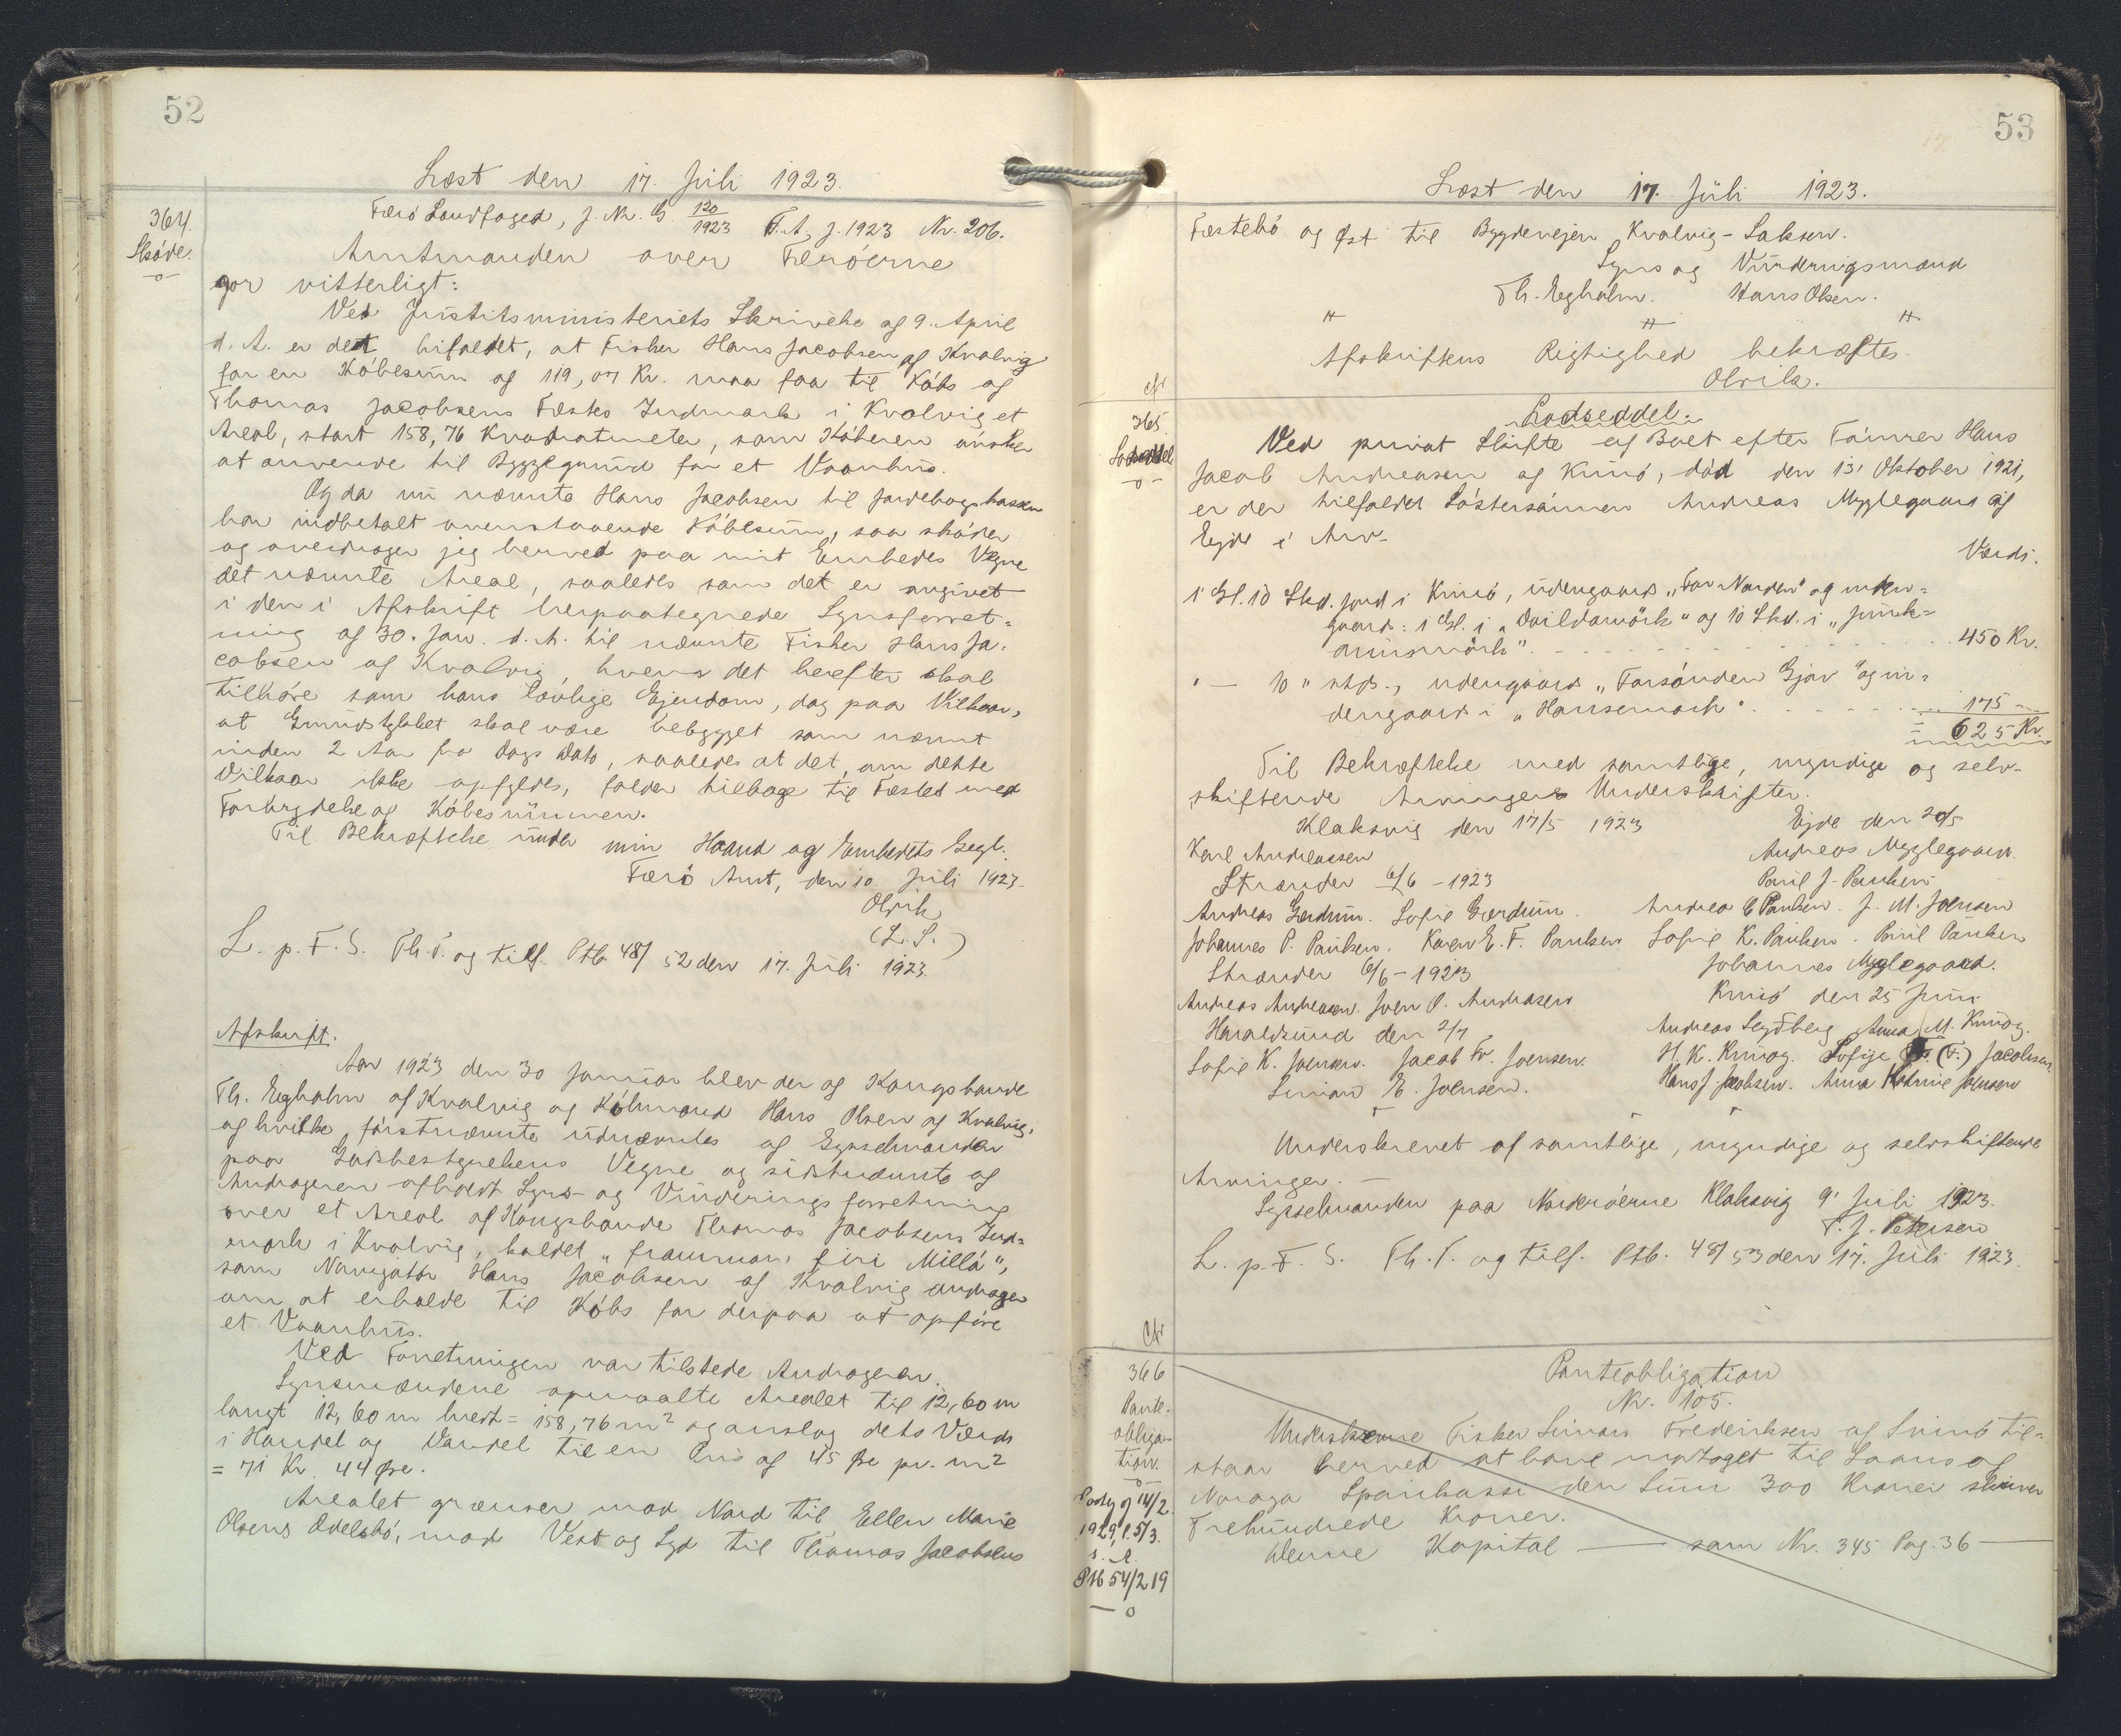 52
Læst den 17. Juli 1923.
364.
Skøde.
Færö Landfoged, J. Nr. G. 120/1923 F.A. J. 1923 Nr. 206.
Amtmanden over Færöerne
gør vitterligt:
Ved Justitsministeriets Skrivelse af 9. April
d. A. er det bifaldet, at Fisker Hans Jacobsen af Kvalvig
for en Købesum af 119,07 Kr. maa faa til Købs af
Thomas Jacobsens Fæstes Indmark i Kvalvig et
Areal, stort 158,76 Kvadratmeter, som Køberen ønsker
at anvende til Byggegrund for et Vaanhus.
Og da nu nævnte Hans Jacobsen til Jordebogskassen
har indbetalt ovenstaaende Købesum, saa skøder
og overdrager jeg herved paa mit Embedes Vegne
det nævnte Areal, saaledes som det er angivet
i den i Afskrift herpaategnede Synsforret-
ning af 30. Jan. d. A. til nævnte Fisker Hans Ja-
cobsen af Kvalvig, hvem det herefter skal
tilhøre som hans lovlige Ejendom, dog paa Vilkaar,
at Grundstykket skal være bebygget som nævnt
inden 2 Aar fra Dags Dato, saaledes at det, om dette
Vilkaar ikke opfyldes, falder tilbage til Fæstet med
Forbrydelse af Købesummen.
Til Bekræftelse under min Haand og Embedets Segl.
Færö Amt, den 10. Juli 1923.
Olrik
(L.S.)
L. p. F. S. Th. T. og tilf. Ptb. 48/52 den 17. Juli 1923.
Afskrift.
Aar 1923 den 30 Januar blev der af Kongsbonde
Th. Egholm af Kvalvig og Købmand Hans Olsen af Kvalvig,
af hvilke førstnævnte udnævntes af Sysselmanden
paa Godsbestyrelsens Vegne og sidstnævnte af
Andrageren afholdt Syns- og Vurderingsforretning
over et Areal af Kongsbonde Thomas Jacobsens Ind-
mark i Kvalvig, kaldet „framman firi Millá",
som Navigatör Hans Jacobsen af Kvalvig andrager
om at erholde til Købs for derpaa at opføre
et Vaanhus.
Ved Forretningen var tilstede Andrageren.
Synsmændene opmaalte Arealet til 12,60 m
langt 12,60 m bredt = 158,76 m² og anslog dets Værdi
i Handel og Vandel til en Pris af 45 Øre pr. m²
= 71 Kr. 44 Øre.
Arealet grænser mod Nord til Ellen Marie
Olsens Odelsbø, mod Vest og Syd til Thomas Jacobsens
53
Læst den 17. Juli 1923.
Fæstebø og Øst til Bygdevejen Kvalvig-Saksen.
Syns og Vurderingsmænd
Th. Egholm. Hans Olsen.
Afskriftens Rigtighed bekræftes.
Olrik.
cfr
365.
Lodseddel
Lodseddel.
Ved privat Skifte af Boet efter Tømrer Hans
Jacob Andreasen af Kunø, død den 13. Oktober 1921,
er der tilfaldet Søstersønnen Andreas Mygglegaard af
Ejde i Arv.
Værdi.
1 Gl. 10 Skd. Jord i Kunø, udengaards „For Norden" og inden-
gaards: 1 Gl. i „Dvildamörk" og 10 Skd. i
450 Kr.
" — 10 " stds., udengaards „Forsónden Gjov" og in-
dengaards i „Hansemark".
175
625 Kr.
Til Bekræftelse med samtlige, myndige og selv-
skiftende Arvingers Underskrifter.
Klaksvig den 17/5 1923
Ejde den 20/5
Karl Andreassen
Andreas Mygglegaard.
Strænder 6/6 - 1923
Poul J. Paulsen
Andreas Gærdum. Sofie Gærdum.
Andrea E Paulsen. J. M. Joensen
Johannes P. Paulsen. Karen E. F. Paulsen
Sofie K. Paulsen. Poul Paulsen
Strænder 6/6 - 1923
Johannes Mygglegaard.
Andreas Andreasen. Joen P. Andreasen
Kunø den 25 Juni
Haraldsund den 2/7
Andreas Seyðberg Anna M. Kunoy.
Sofie K. Joensen. Jacob Fr. Joensen.
H. K. Kunoy. Sofije (F.) Jacobsen.
Simun E. Joensen.
Hans J. Jacobsen. Anna Katrine Joensen
Underskrevet af samtlige, myndige og selvskiftende
Arvinger.
Sysselmanden paa Norderøerne Klaksvig 9. Juli 1923.
T. J. Petersen
L. p. F. S. Th. T. og tilf. Ptb. 48/53 den 17. Juli 1923.
Cfr
366
Pante-
obliga-
tion.
14/2
1929, l. 5/3.
s. A.
Ptb 54/219
Panteobligation
Nr. 105.
Underskrevne Fisker Simun Frederiksen af Svinö til-
staar herved at have modtaget til Laans af
Noroya Sparikassi den Sum 300 Kroner skriver
Trehundrede Kroner.
Denne Kapital — som Nr. 345 Pag. 36 —